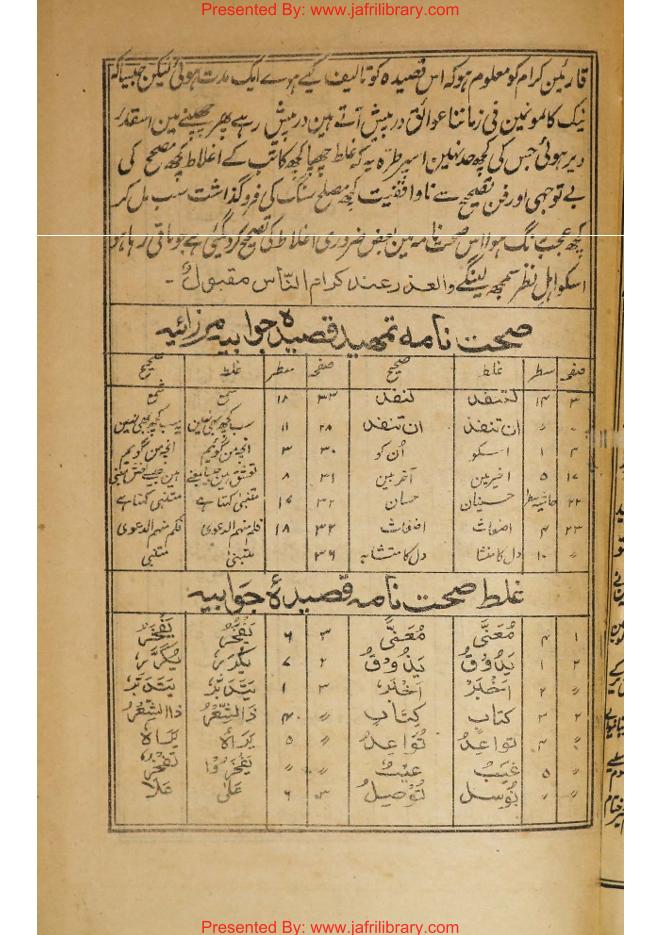 Presented By: www.jafrilibrary.com
قارئین کرام کو معلوم ہو کہ اس قصیدہ کو تالیف کیے ہوے ایک مدت ہوئی لیکن جیسا کہ
نیک کامونمین فی زماننا عوائق درپیش آتے ہین درپیش رہے پھر چھپنے مین اسقدر
دیر ہوئی جس کی کچھ حد نہین اسپر طرہ یہ کہ غلط چھپا کچھ کاتب کے اغلاط کچھ مصحح کی
بے توجہی اور فن تصحیح سے ناواقفیت کچھ مصلح سنگ کی فروگذاشت سب مل کر
کچھ عجب رنگ ہوا اس صحت نامہ مین بعض ضروری اغلاط کی تصحیح کردیگئی ہے جو باقی رہا ہو
اسکو اہل نظر سمجھ لینگے والعذر عند کرام الناس مقبول -
صحت نامہ تمہید قصیدہ جوابیہ مرزائیہ
صفحہ سطر غلط صحیح صفحہ سطر غلط صحیح
۳ ۱۴ لتنفد لنفد ۲۳ ۱۸
〃 〃 ان تنفد ان تنفد ۲۸ ۱۱ سب کچھ بھی نہین یہ سب کچھ بھی نہین
۴ ۱ اسکو اُن کو ۳۰ ۳ انچہ من گوئیم انچہ من گویم
۱۷ ۵ اخیرین آخرین ۳۱ ۸
۲۲ حاشیہ سطر حسنیان حسان ۳۲ ۱۷ مقنبی کہتا ہے متنبی کہتا ہے
۲۳ ۴ اضوات اصوات ۳۲ ۱۸ فلہ منہم الدعویٰ فلکم منہم الدعویٰ
〃 ۱۰ دل کا منشا دل کا متشابہ ۳۶ متبنی متنبی
غلط صحت نامہ قصیدۂ جوابیہ
۱ ۴ مُعَنَّی مُعَنًّی ۳ ۶ یَفْخَرُ یَفْخَرُ
۲ ۱ یَذُوْقُ یَذُوْقُ ۲ ۷ یکدر یُکَدِّر
〃 ۲ اَخْبَرْ اَخْبَرَ ۳ ۱ یَتَدَبَّر یَتَدَبَّر
۲ ۳ کتاب کِتَابٍ 〃 ۴ ذَا الشِّعْرُ ذَا الشِّعْرُ
〃 ۴ تواعدُ تُوَاعِدُ 〃 ۵ یَرَاهُ یَرَاهُ
〃 ۵ غیبُ عَیْبُ 〃 〃 یَفْخَرُوْا تَفْخَرُ
〃 〃 نُوسل تُوْصِیلُ ۳ ۶ عَلٰی عَلَا
Presented By: www.jafrilibrary.com